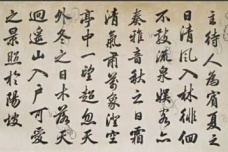 主待人為賓夏之
日清風入林徘徊
不散流泉娛客六
奏雅音秋之日霜
清氣肅萬象澄空
亭中一望超忽天
外冬之日木落天
迥遙山入戶可愛
之景照於陽坡